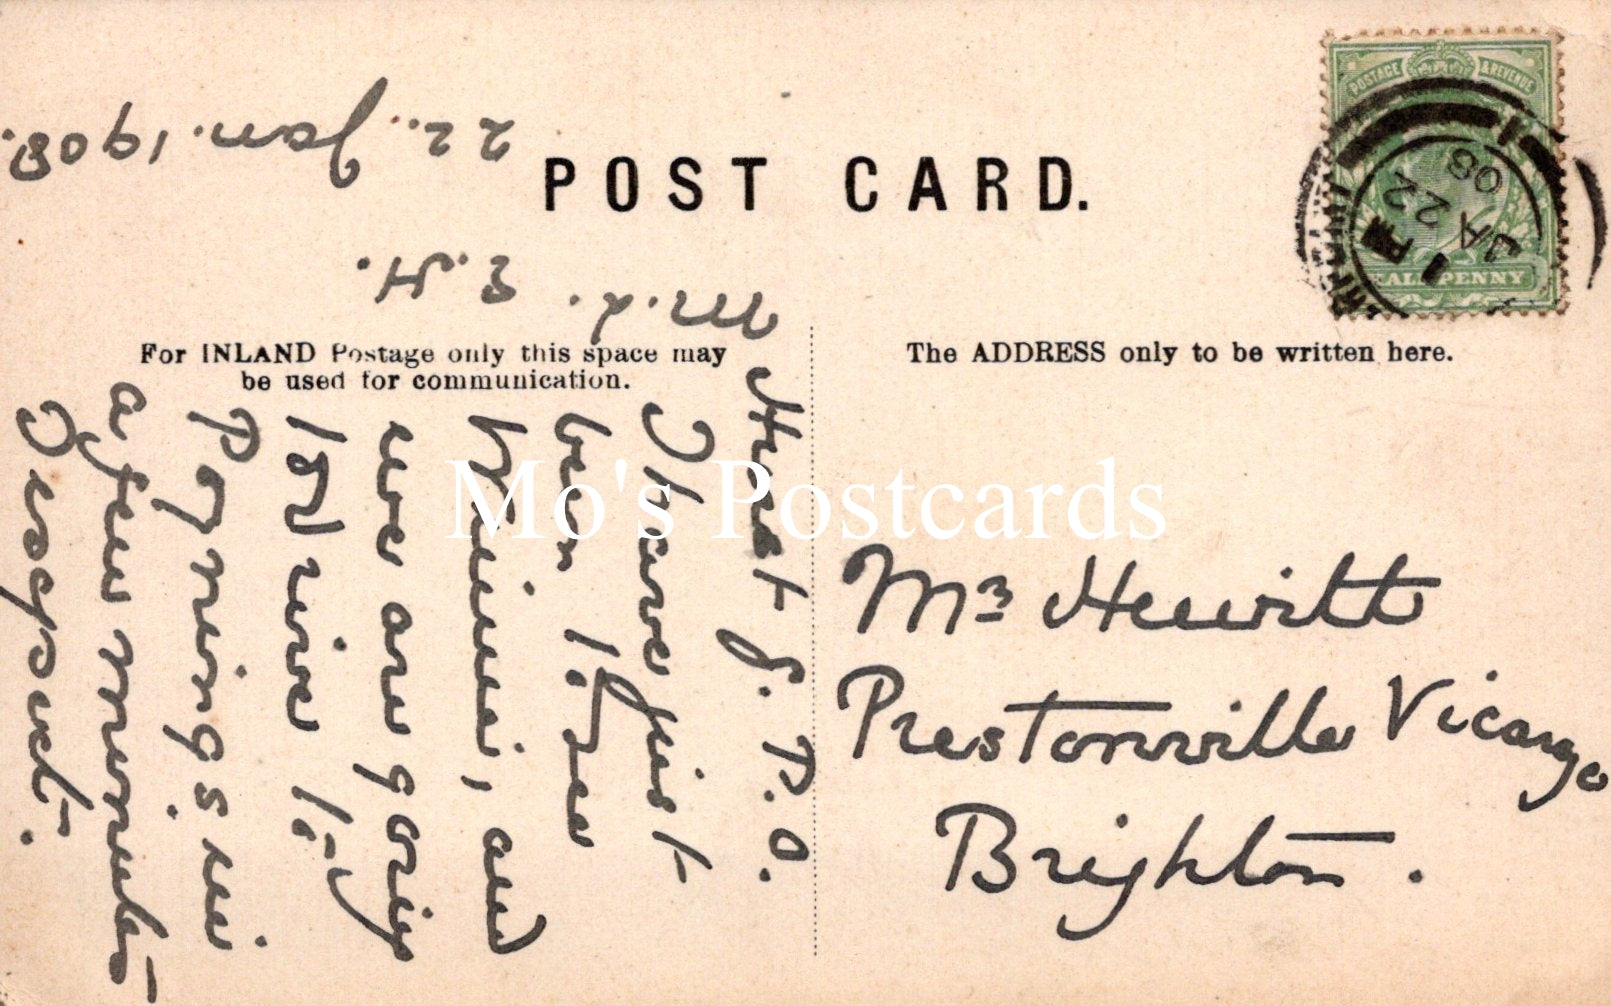 POST CARD.
For INLAND Postage only this space may
be used for communication.
The ADDRESS only to be written here.
Hurst P.O.
I have just
been to see
Winnie, and
we are going
to drive to
Poynings in
a few minutes
I expect.
M.L. E.H.
22. Jan. 1908.
Mrs Hewitt
Prestonville Vicarage
Brighton.
POSTAGE & REVENUE
HALFPENNY
JA 22
08
Mo's Postcards